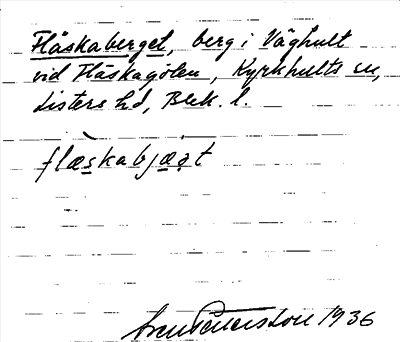 Fläskaberget, berg i Våghult
vid Fläskagölen, Kyrkhults sn,
Listers hd, Blek. l.
flæskabjæṛt
Sven Pettersson 1936